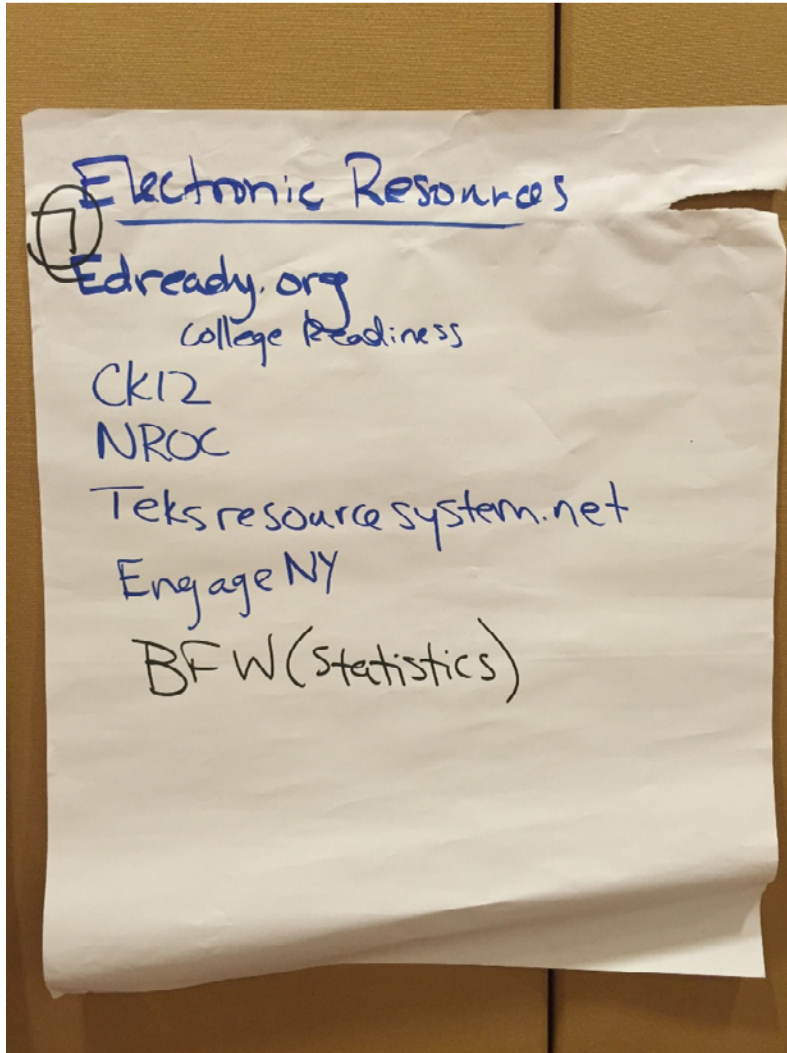 Electronic Resources
7
Edready.org
College Readiness
CK12
NROC
Teksresourcesystem.net
EngageNY
BFW (Statistics)